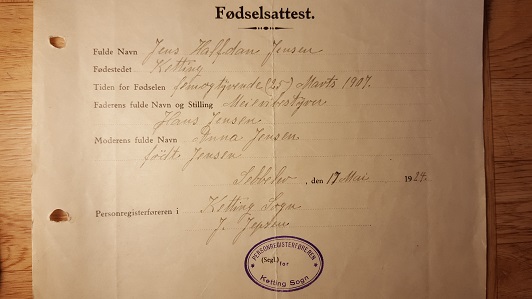 Fødselsattest.
Fulde Navn Jens Halfdan Jensen
Fødestedet Ketting
Tiden for Fødselen femogtyvende (25) Marts 1907.
Faderens fulde Navn og Stilling Meieribestyrer
Hans Jensen
Moderens fulde Navn Anna Jensen
født Jensen
, den 17 Mai 1924.
Personregisterføreren i Ketting Sogn
J. Jepsen
PERSONREGISTERFØREREN
(Segl.) for
Ketting Sogn